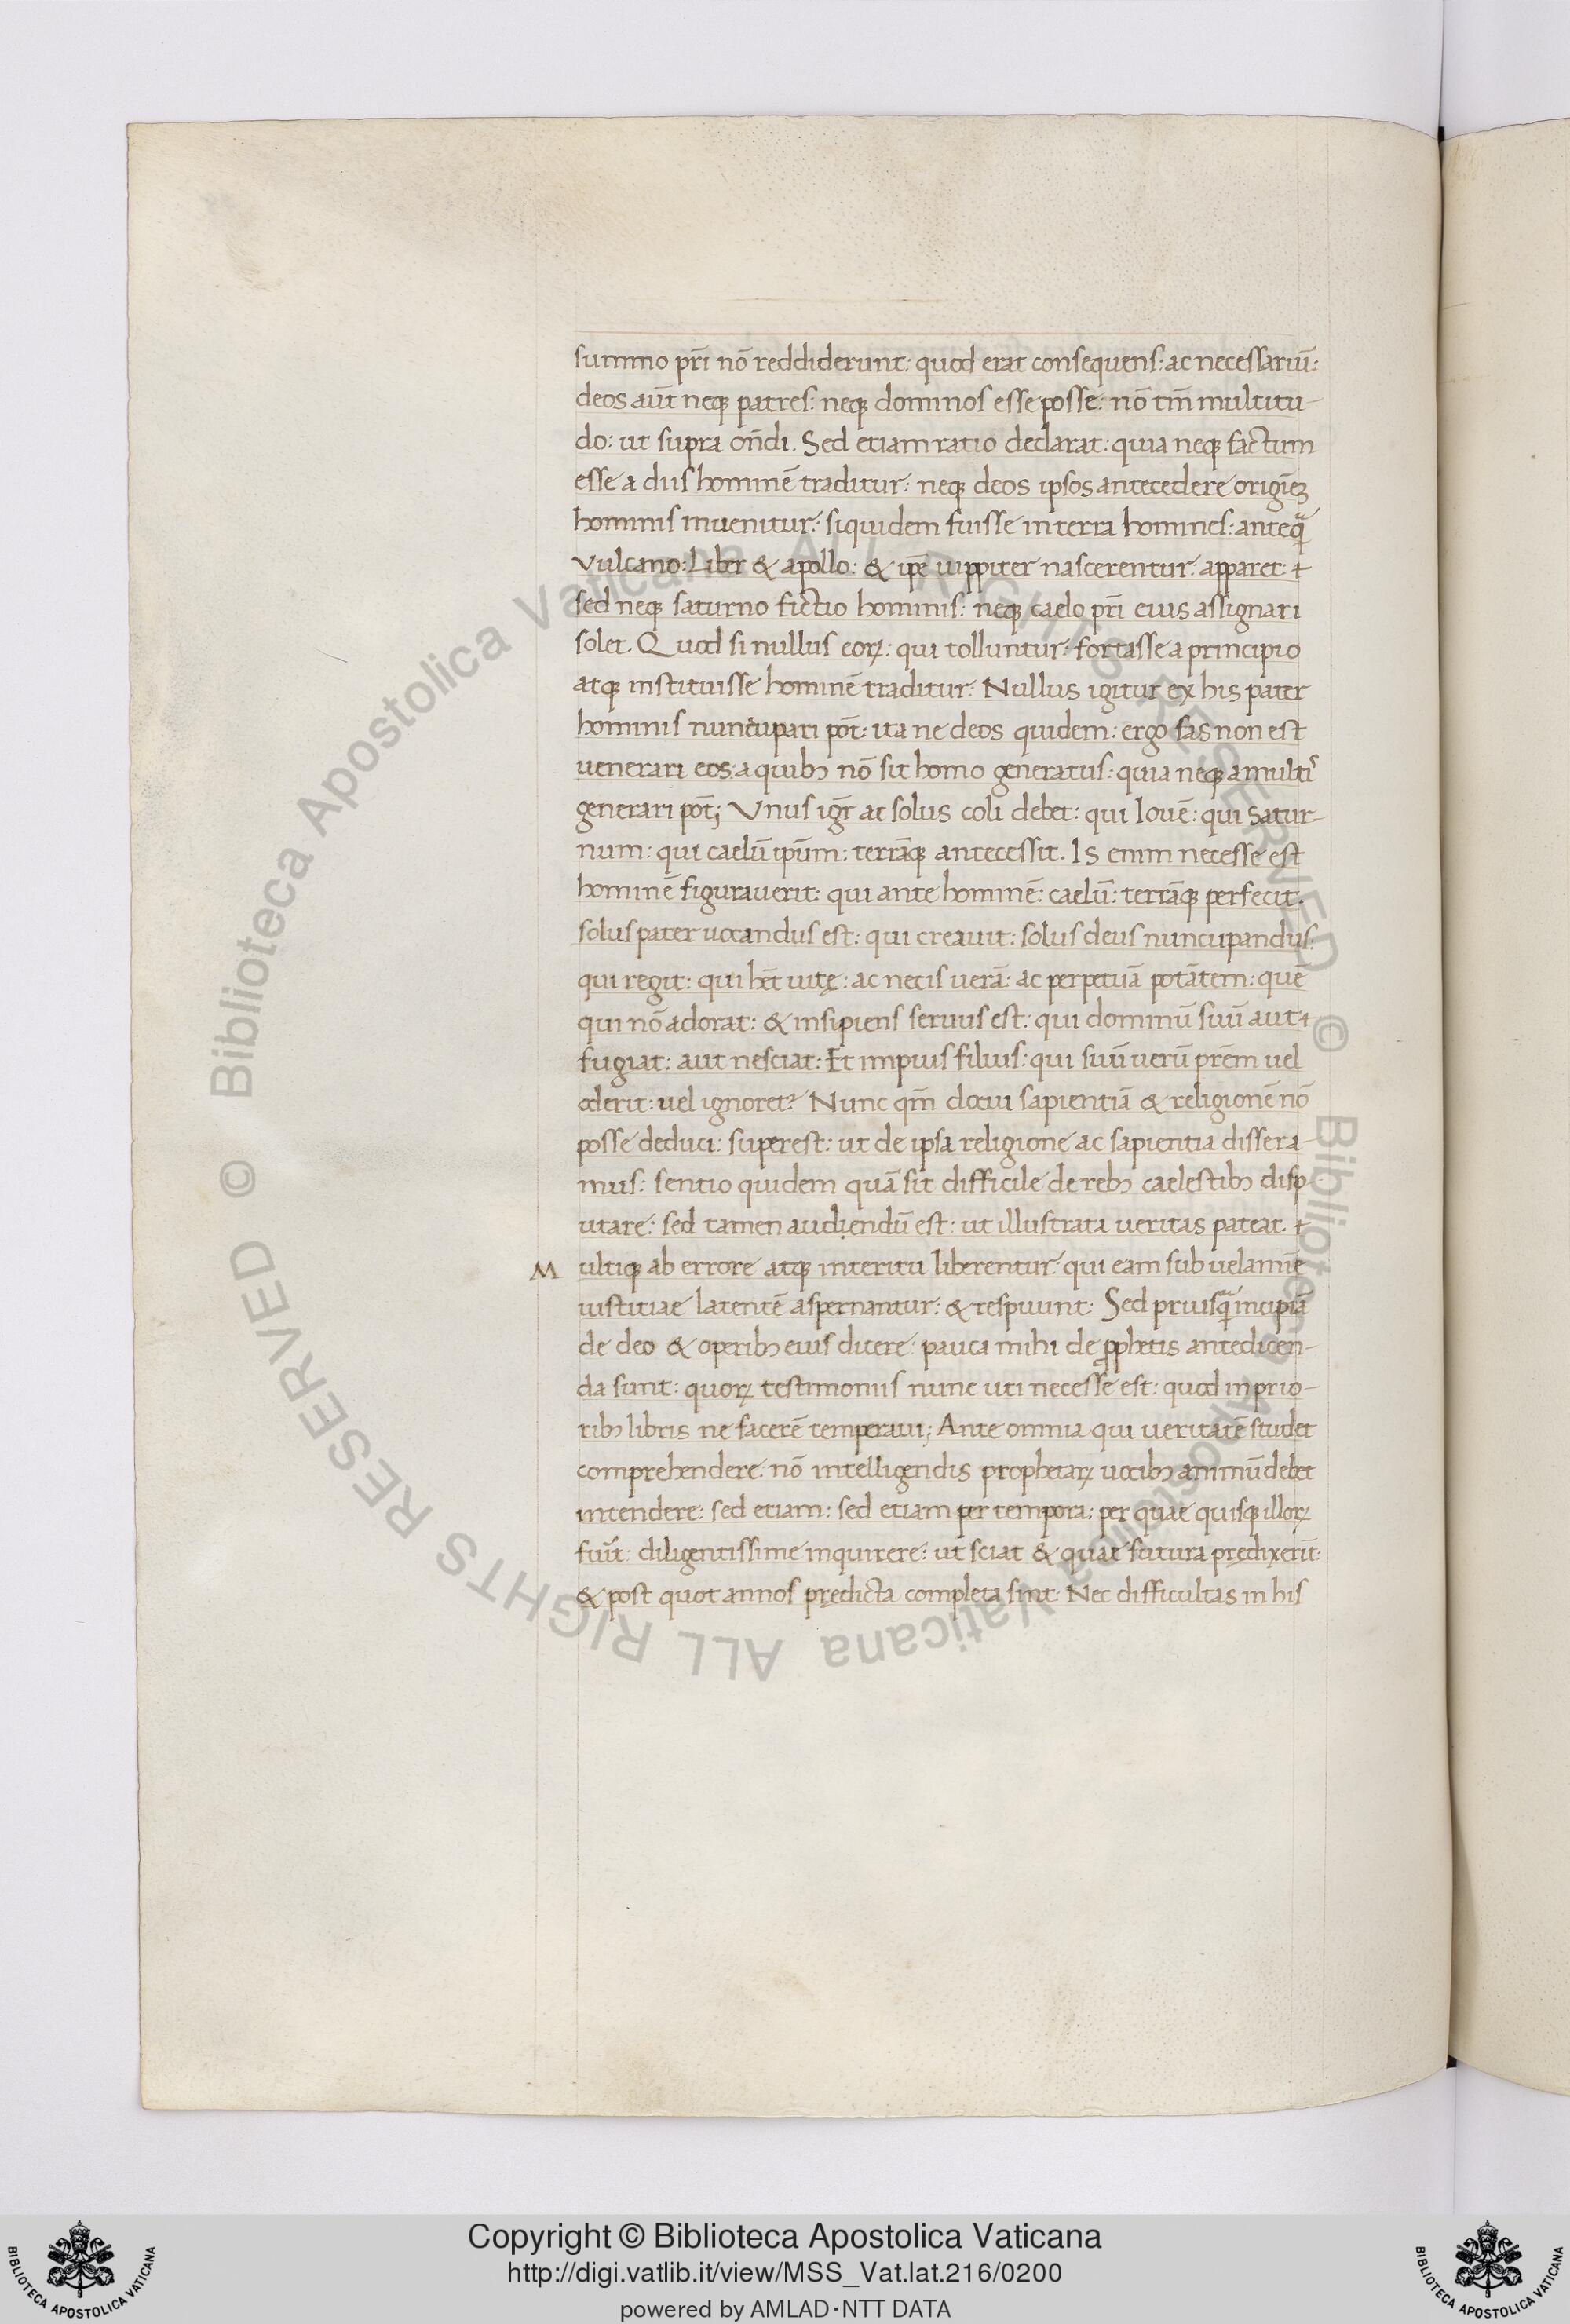 summo pr̄i nō reddiderunt: quod erat consequens: ac necessariū:
deos aūt neqꝫ patres: neqꝫ dominos esse posse: nō tm̄ multitu-
do: ut supra on̄di. Sed etiam ratio declarat: quia neqꝫ factum
esse a diis hominē traditur: neqꝫ deos ipsos antecedere origīeꝫ
hominis inuenitur: siquidem fuisse in terra homines: anteqᷓ
Vulcano: Liber & apollo: & ip̄e iuppiter nascerentur: apparet:
sed neqꝫ saturno fictio hominis: neqꝫ caelo pr̄i eius assignari
solet. Quod si nullus eoꝝ: qui tolluntur: fortasse a principio
atqꝫ instituisse hominē traditur: Nullus igitur ex his pater
hominis nuncupari pōt: ita ne deos quidem: ergo fas non est
uenerari eos: a quibꝫ nō sit homo generatus: quia neqꝫ a multis
generari pōt; Vnus igr̄ ac solus coli debet: qui Iouē: qui Satur-
num: qui caelū ipūm: terrāqꝫ antecessit. Is enim necesse est
hominē figurauerit: qui ante hominē: caelū: terrāqꝫ perfecit.
solus pater uocandus est: qui creauit: solus deus nuncupandus:
qui regit: qui hēt uitę: ac necis uerā: ac perpetuā potātem: quē
qui nō adorat: & insipiens seruus est: qui dominū suū aut
fugiat: aut nesciat: Et impius filius: qui suū uerū prēm uel
oderit: uel ignoret? Nunc qm̄ docui sapientiā & religionē nō
posse deduci: superest: ut de ipsa religione ac sapientia dissera-
mus: sentio quidem quā sit difficile de rebꝫ caelestibꝫ disp
utare: sed tamen audiendū est: ut illustrata ueritas pateat.
M ultiqꝫ ab errore atqꝫ interitu liberentur: qui eam sub uelamīe
iustitiae latentē aspernantur: & respuunt. Sed priusqᷓ incipiā
de deo & operibꝫ eius dicere: pauca mihi de ꝓphetis antedicen-
da sunt: quoꝝ testimoniis nunc uti necesse est: quod in prio-
ribꝫ libris ne facerē temperaui; Ante omnia qui ueritatē studet
comprehendere: nō intelligendis prophetaꝝ uocibꝫ animū debet
intendere: sed etiam: sed etiam per tempora: per quae quisqꝫ illoꝝ
fuīt: diligentissime inquirere: ut sciat & quae scitura prędixerīt:
& post quot annos prędicta completa sint. Nec difficultas in his
© Biblioteca Apostolica Vaticana ALL RIGHTS RESERVED
© Biblioteca Apostolica Vaticana ALL RIGHTS RESERVED
Copyright © Biblioteca Apostolica Vaticana
http://digi.vatlib.it/view/MSS_Vat.lat.216/0200
powered by AMLAD·NTT DATA
BIBLIOTECA APOSTOLICA VATICANA
BIBLIOTECA APOSTOLICA VATICANA